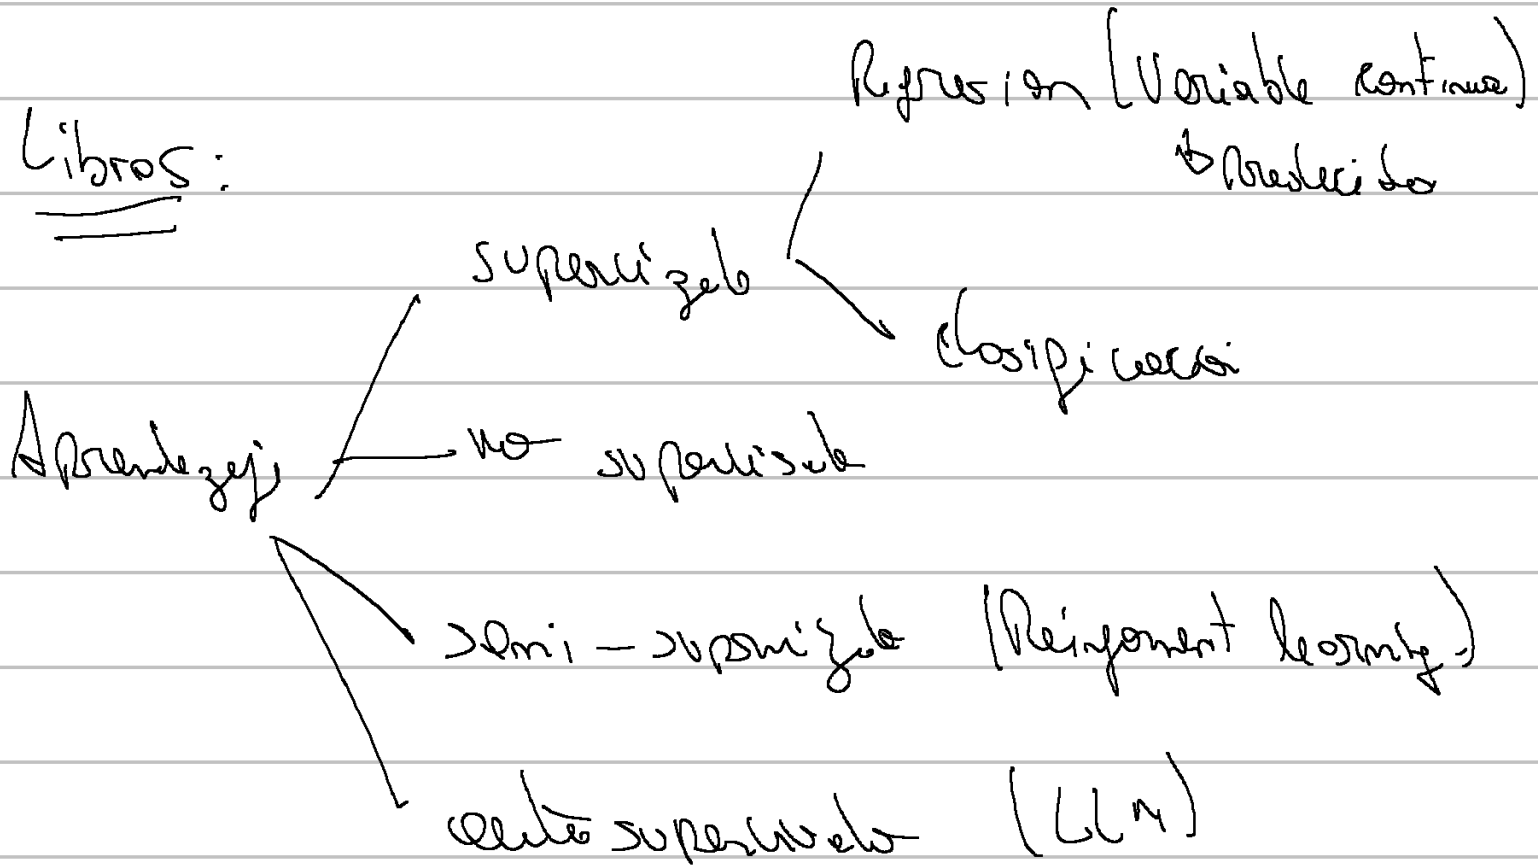 Regresion (Variable continua)
↳ predecida
Libros:
supervizado
clasificación
Aprendizaje
no supervisado
semi-supervizado (Reinforment learning)
auto supervisado (LLM)